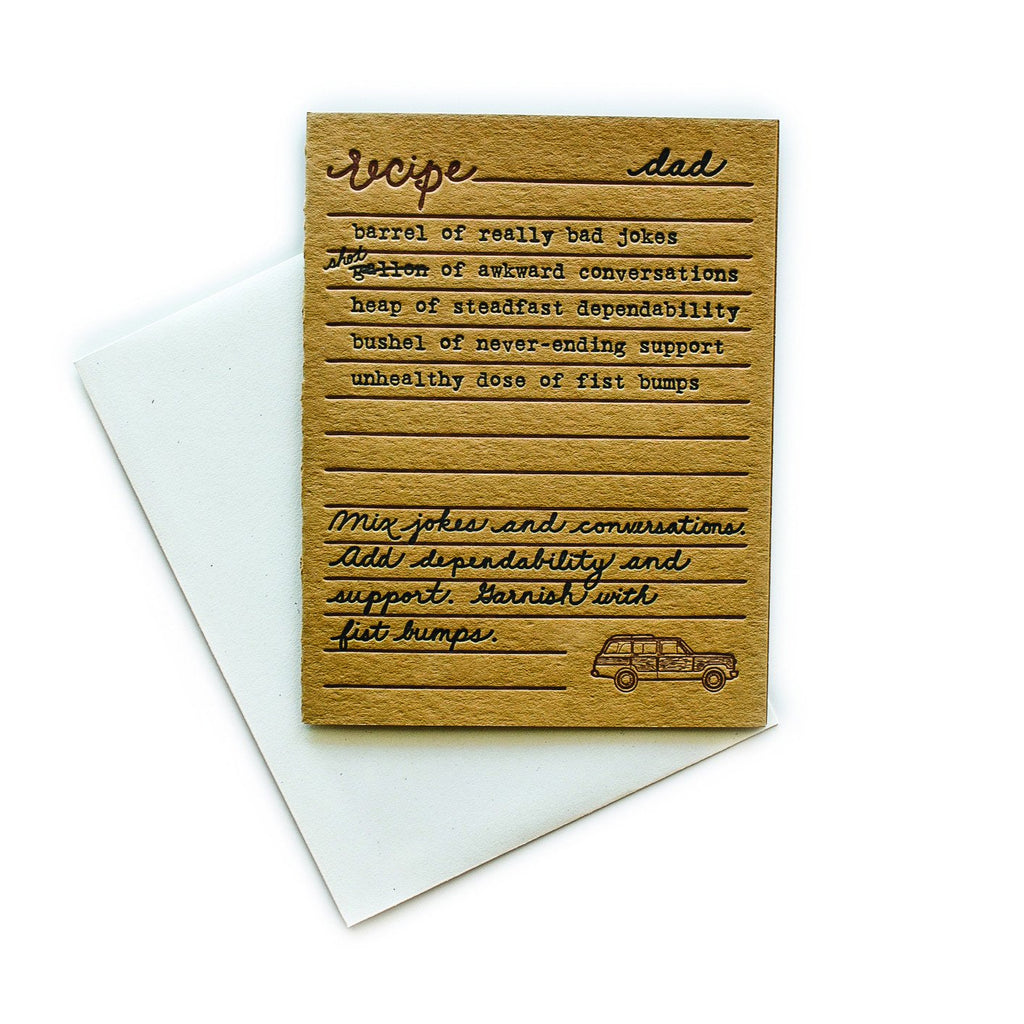 recipe dad
barrel of really bad jokes
shot gallon of awkward conversations
heap of steadfast dependability
bushel of never-ending support
unhealthy dose of fist bumps
Mix jokes and conversations.
Add dependability and
support. Garnish with
fist bumps.